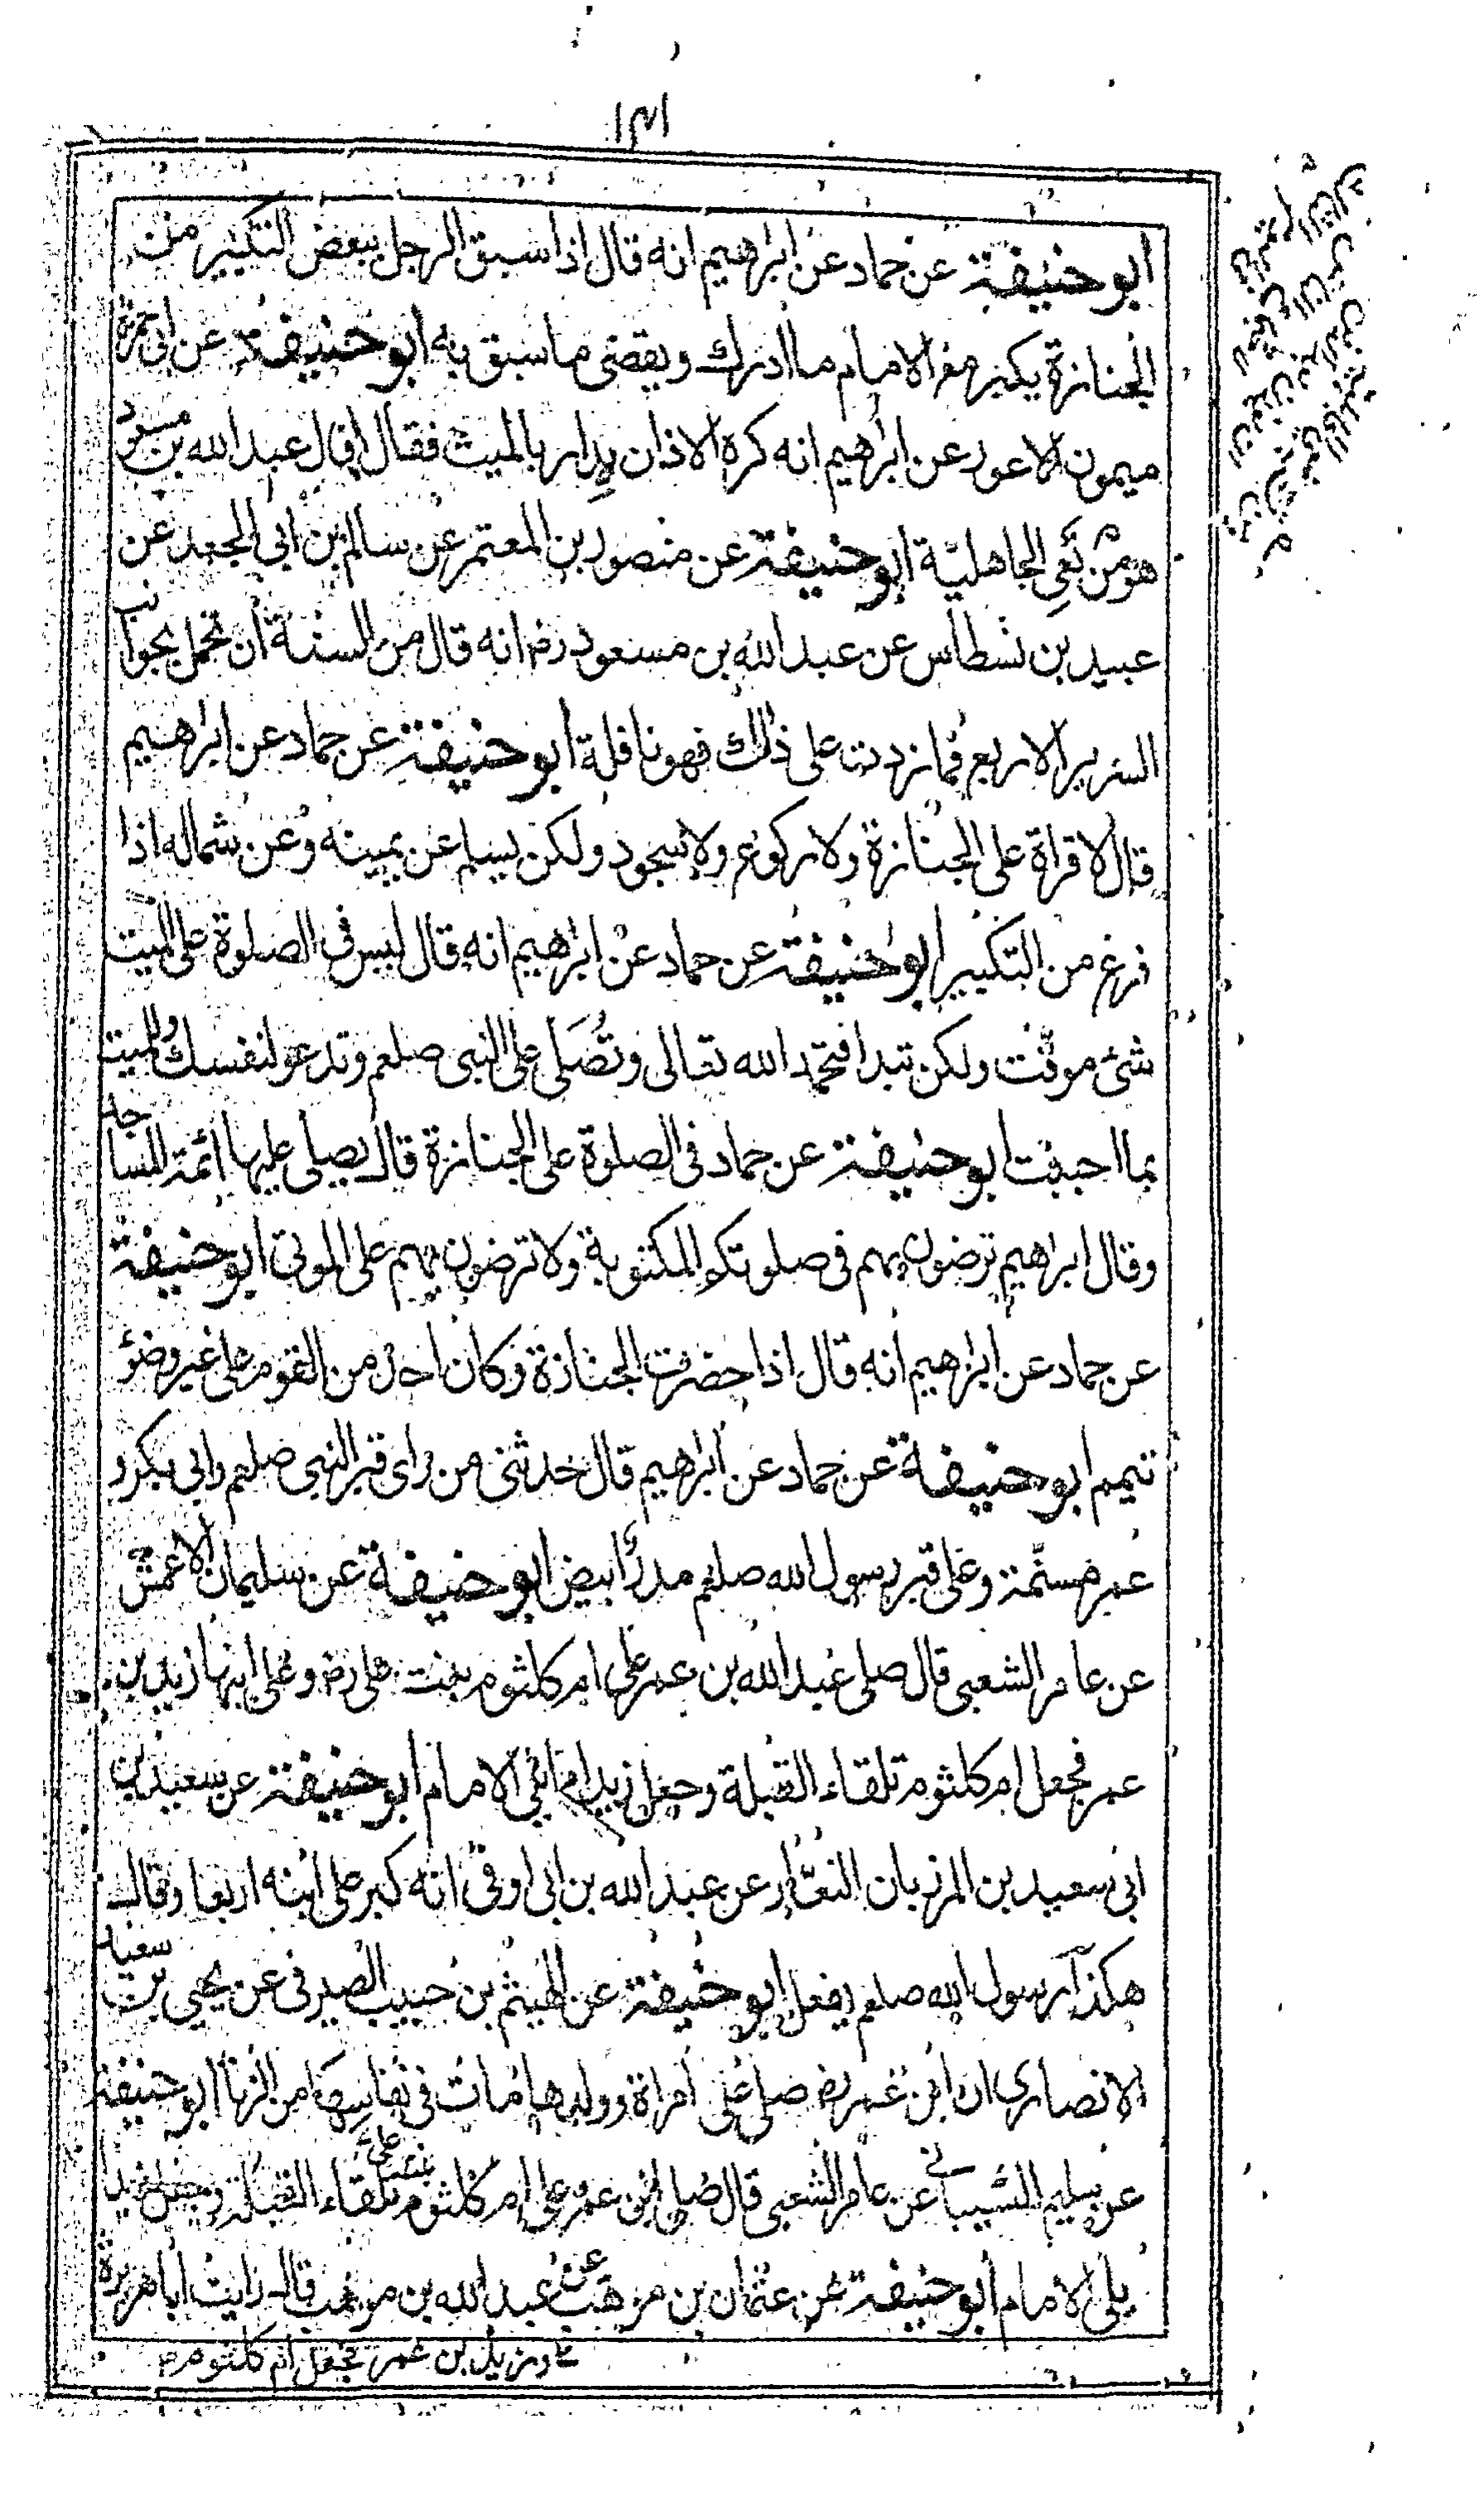 ابو حنيفة عن حماد عن ابرٰهيم انه قال اذا سبق الرجل ببعض التكبير من
الجنازة يكبر مع الامام ما ادرك ويقضى ما سبق به ابو حنيفة عن ابى حمزة
ميمون الاعور عن ابرٰهيم انه كره الاذان بالميت فقال قال عبد الله بن مسعود
هو من نَعْىِ الجاهليّة ابو حنيفة عن منصور بن المعتمر عن سالم بن ابى الجعد عن
عبيد بن نسطاس عن عبد الله بن مسعود رضـ انه قال من السنة ان تحمل بجوانب
السرير الاربع فما زدت على ذٰلك فهو نافلة ابو حنيفة عن حماد عن ابرٰهيم
قال لا قراة على الجنازة ولا ركوع ولا سجود ولكن يسلم عن يمينه وعن شماله اذا
فرغ من التكبير ابو حنيفة عن حماد عن ابرٰهيم انه قال ليس فى الصلوة على الميت
شئ موقّت ولكن تبدا فتحمد الله تعالى وتُصَلى على النبى صلعم وتدعو لنفسك وللميت
بما احببت ابو حنيفة عن حماد فى الصلوة على الجنازة قال يصلى عليها ائمة المساجد
وقال ابرٰهيم ترضون بهم فى صلوتكم المكتوبة ولا ترضون بهم على الموتى ابو حنيفة
عن حماد عن ابرٰهيم انه قال اذا حضرت الجنازة وكان احد من القوم على غير وضوء
تيمم ابو حنيفة عن حماد عن ابرٰهيم قال حدثنى من راى قبر النبى صلعم وابى بكر و
عمر مسنّمة وعلى قبر رسول الله صلعم مدر ابيض ابو حنيفة عن سليمان الاعمش
عن عامر الشعبى قال صلى عبد الله بن عمر على ام كلثوم بنت على رضـ وعلى ابنها زيد بن
عمر فجعل ام كلثوم تلقاء القبلة وجعل زيدا مما يلى الامام ابو حنيفة عن سعيد بن
ابى سعيد بن المرزبان عن عبد الله بن ابى اوفى انه كبر على ابنه اربعا وقال
هكذا رسول الله صلعم يفعل ابو حنيفة عن الهيثم بن حبيب الصيرفى عن يحيى بن سعيد
الانصارى ان ابن عمر رضـ صلى على امراة وولدها ماتت فى نفاسها من الزنا ابو حنيفة
عن سليم الشيبانى عن عامر الشعبى قال صلى ابن عمر على ام كلثوم بنت على تلقاء القبلة وجعل زيدا
يلى الامام ابو حنيفة عن عثمان بن موهب عن عبد الله بن موهب قال رايت ابا هريرة
وزيد بن عمر فجعل ام كلثوم